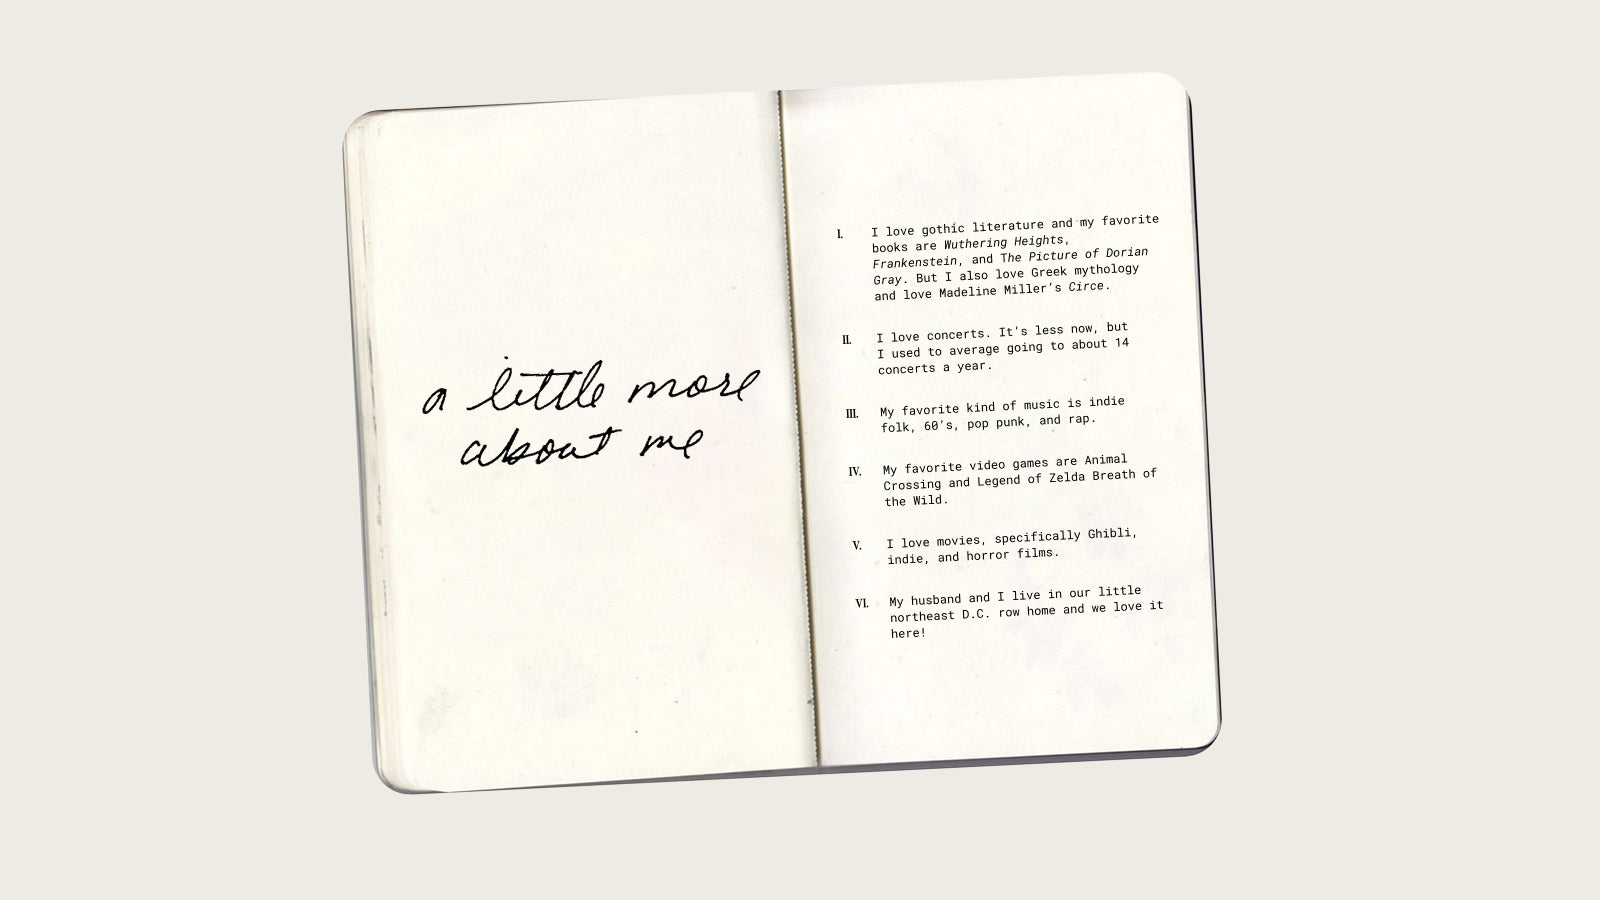 a little more
about me
I. I love gothic literature and my favorite
books are Wuthering Heights,
Frankenstein, and The Picture of Dorian
Gray. But I also love Greek mythology
and love Madeline Miller's Circe.
II. I love concerts. It's less now, but
I used to average going to about 14
concerts a year.
III. My favorite kind of music is indie
folk, 60's, pop punk, and rap.
IV. My favorite video games are Animal
Crossing and Legend of Zelda Breath of
the Wild.
V. I love movies, specifically Ghibli,
indie, and horror films.
VI. My husband and I live in our little
northeast D.C. row home and we love it
here!